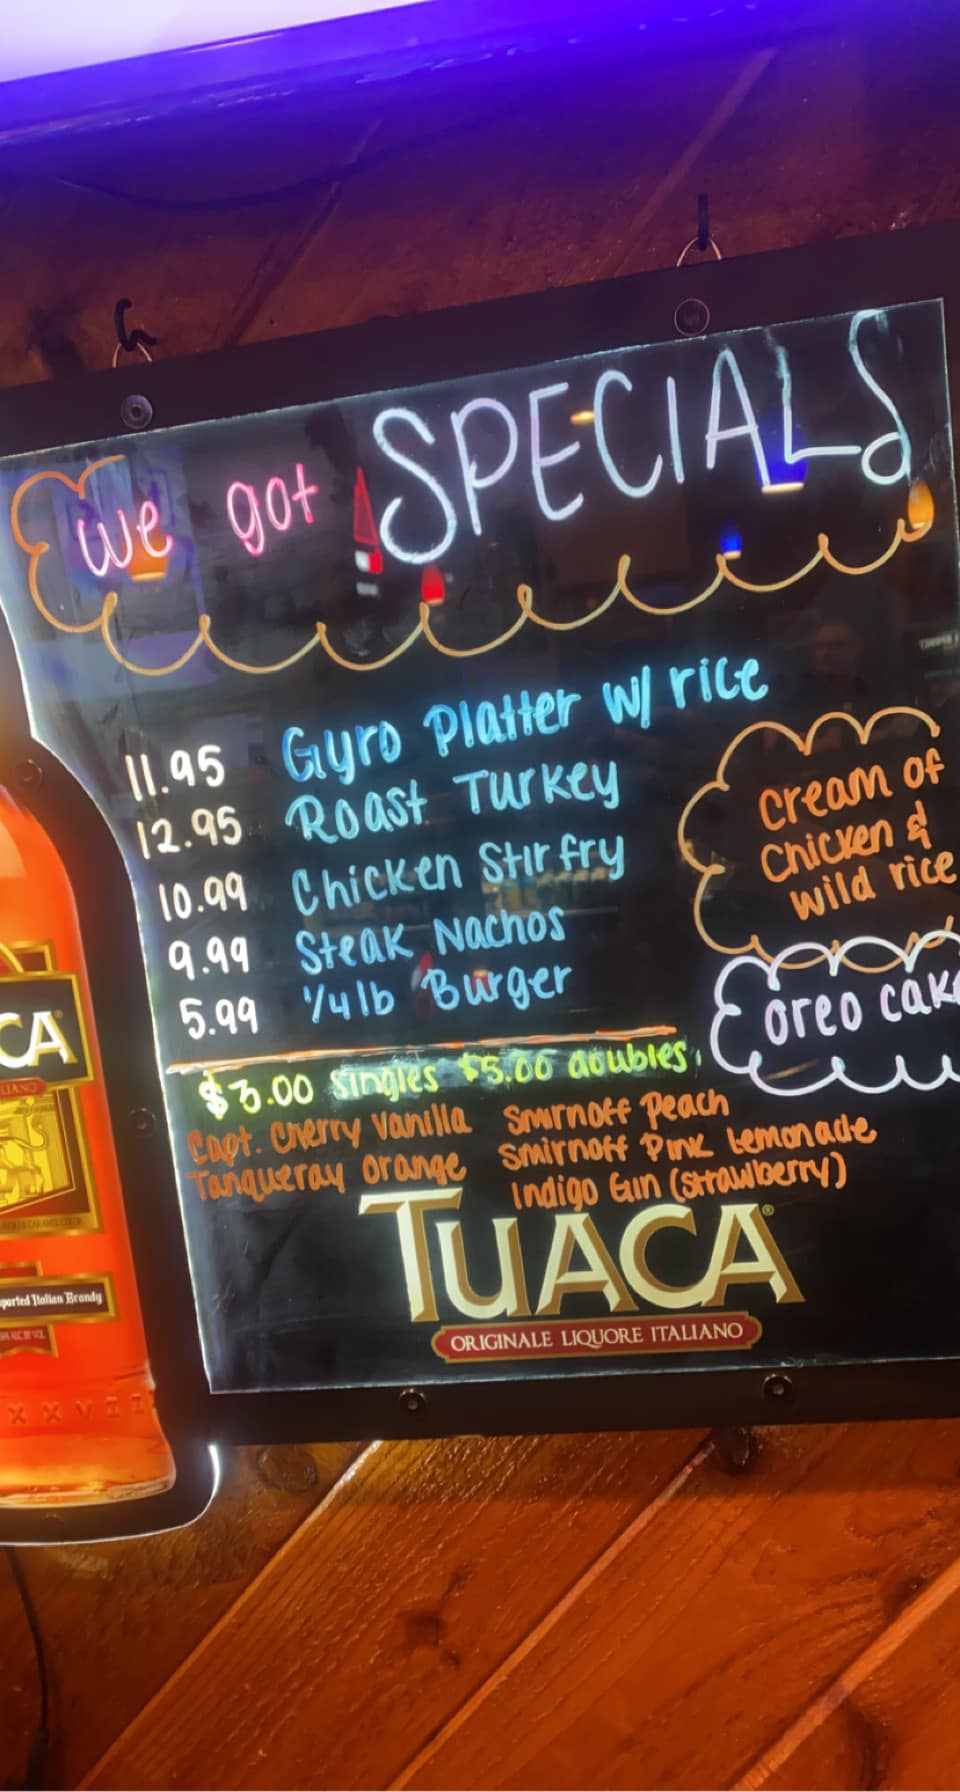 we got SPECIALS
11.95 Gyro Platter w/ rice
12.95 Roast Turkey
10.99 Chicken Stir fry
9.99 Steak Nachos
5.99 1/4 lb Burger
Cream of
Chicken &
wild rice
oreo cake
$3.00 singles $5.00 doubles
Capt. Cherry Vanilla Smirnoff Peach
Tanqueray orange Smirnoff Pink Lemonade
Indigo Gin (strawberry)
TUACA®
ORIGINALE LIQUORE ITALIANO
CA
LIANO
ported Italian Brandy
XXVII